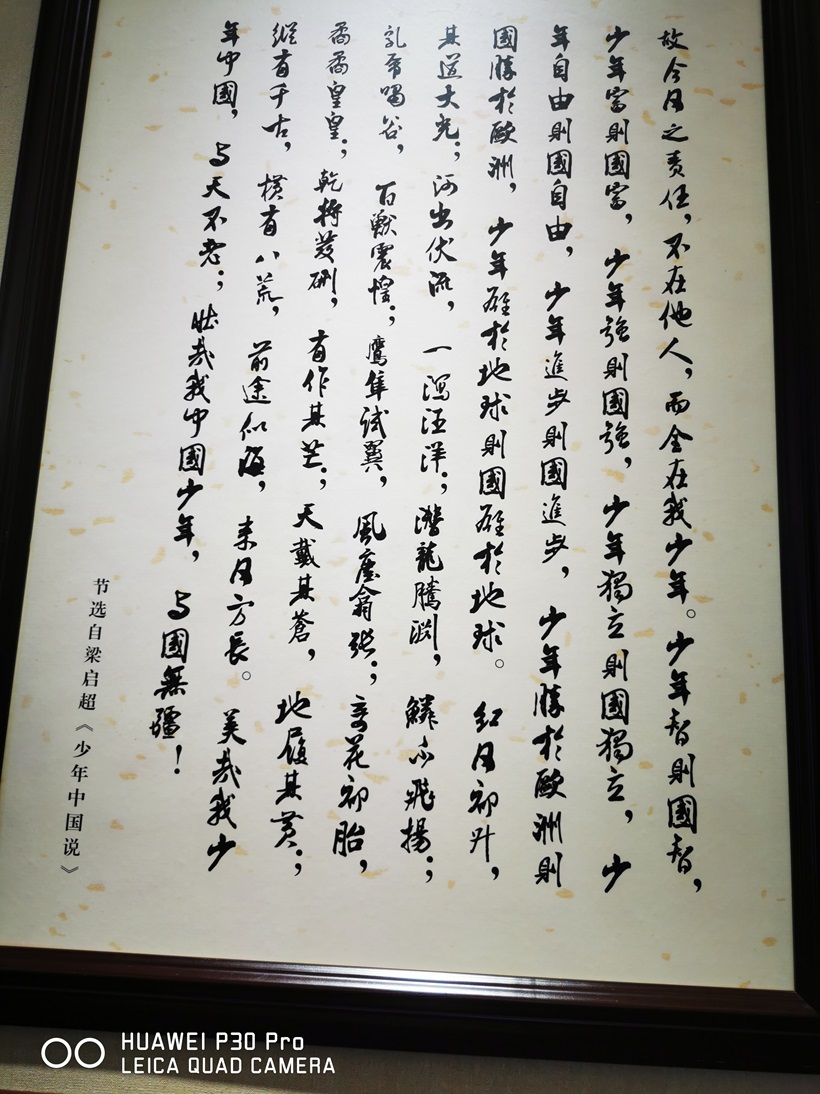 故今日之责任，不在他人，而全在我少年。少年智則國智，
少年富則國富，少年強則國強，少年獨立則國獨立，少
年自由則國自由，少年進步則國進步，少年勝於歐洲則
國勝於歐洲，少年雄於地球則國雄於地球。紅日初升，
其道大光；河出伏流，一瀉汪洋；潛龍騰淵，鱗爪飛揚；
乳虎嘯谷，百獸震惶；鷹隼試翼，風塵翕張；奇花初胎，
矞矞皇皇；乾將發硎，有作其芒；天戴其蒼，地履其黃；
縱有千古，橫有八荒，前途似海，来日方長。美哉我少
年中國，与天不老；壯哉我中國少年，与國無疆！
节选自梁启超《少年中国说》
HUAWEI P30 Pro
LEICA QUAD CAMERA